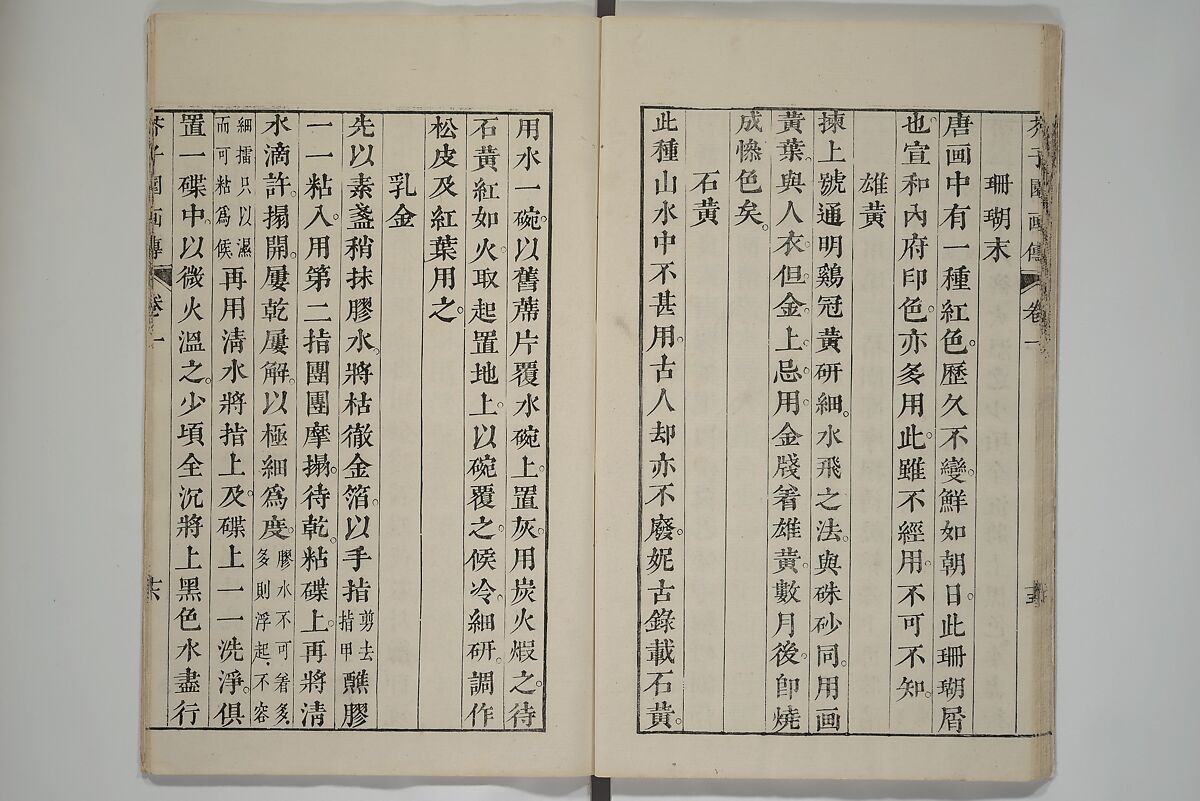 芥子園畫傳 卷一 十五
珊瑚末
唐画中有一種紅色。歷久不變。鮮如朝日。此珊瑚屑
也。宣和內府印色。亦多用此。雖不經用。不可不知。
雄黃
揀上號通明鷄冠黃研細。水飛之法。與硃砂同。用画
黃葉。與人衣。但金上忌用。金牋着雄黃。數月後。卽燒
成慘色矣。
石黃
此種山水中不甚用。古人却亦不廢。妮古錄載石黃。
用水一碗。以舊蓆片覆水碗上。置灰。用炭火煅之。待
石黃紅如火。取起置地上。以碗覆之。候冷。細研。調作
松皮及紅葉用之。
乳金
先以素盞稍抹膠水。將枯徹金箔。以手指剪去指甲醮膠
一一粘入。用第二指團團摩搨。待乾。粘碟上。再將清
水滴許。搨開。屢乾屢解。以極細爲度。膠水不可着多。多則浮起。不容
細擂只以濕而可粘爲候。再用清水將指上及碟上一一洗淨。俱
置一碟中。以微火溫之。少頃全沉將上黑色水盡行
芥子園画傳 卷一 十六